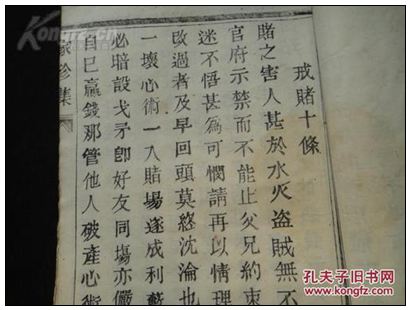 戒賭十條
賭之害人甚於水火盜賊無不
官府示禁而不能止父兄約束
迷不悟甚為可憫請再以情理
改過者及早回頭莫終沈淪也
一壞心術一入賭場遂成利藪
必暗設戈矛卽好友同場亦儼
自已贏錢那管他人破產心術
珍集
孔夫子旧书网